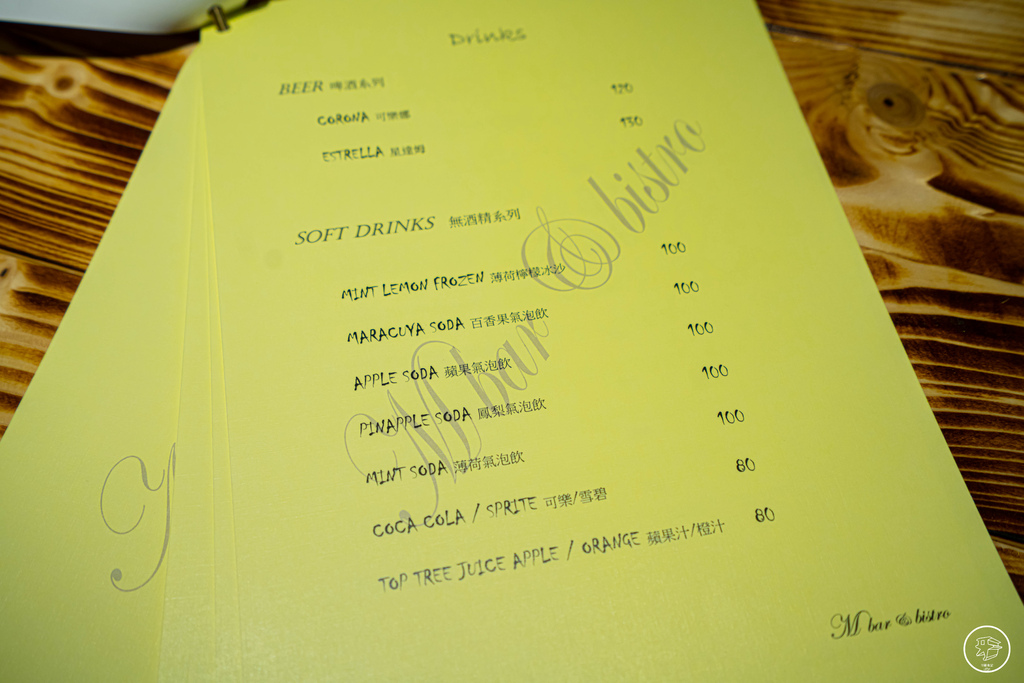 Drinks
BEER 啤酒系列
CORONA 可樂娜 120
ESTRELLA 星達姆 130
SOFT DRINKS 無酒精系列
MINT LEMON FROZEN 薄荷檸檬冰沙 100
MARACUYA SODA 百香果氣泡飲 100
APPLE SODA 蘋果氣泡飲 100
PINAPPLE SODA 鳳梨氣泡飲 100
MINT SODA 薄荷氣泡飲 100
COCA COLA / SPRITE 可樂/雪碧 80
TOP TREE JUICE APPLE / ORANGE 蘋果汁/橙汁 80
M bar & bistro
M bar & bistro